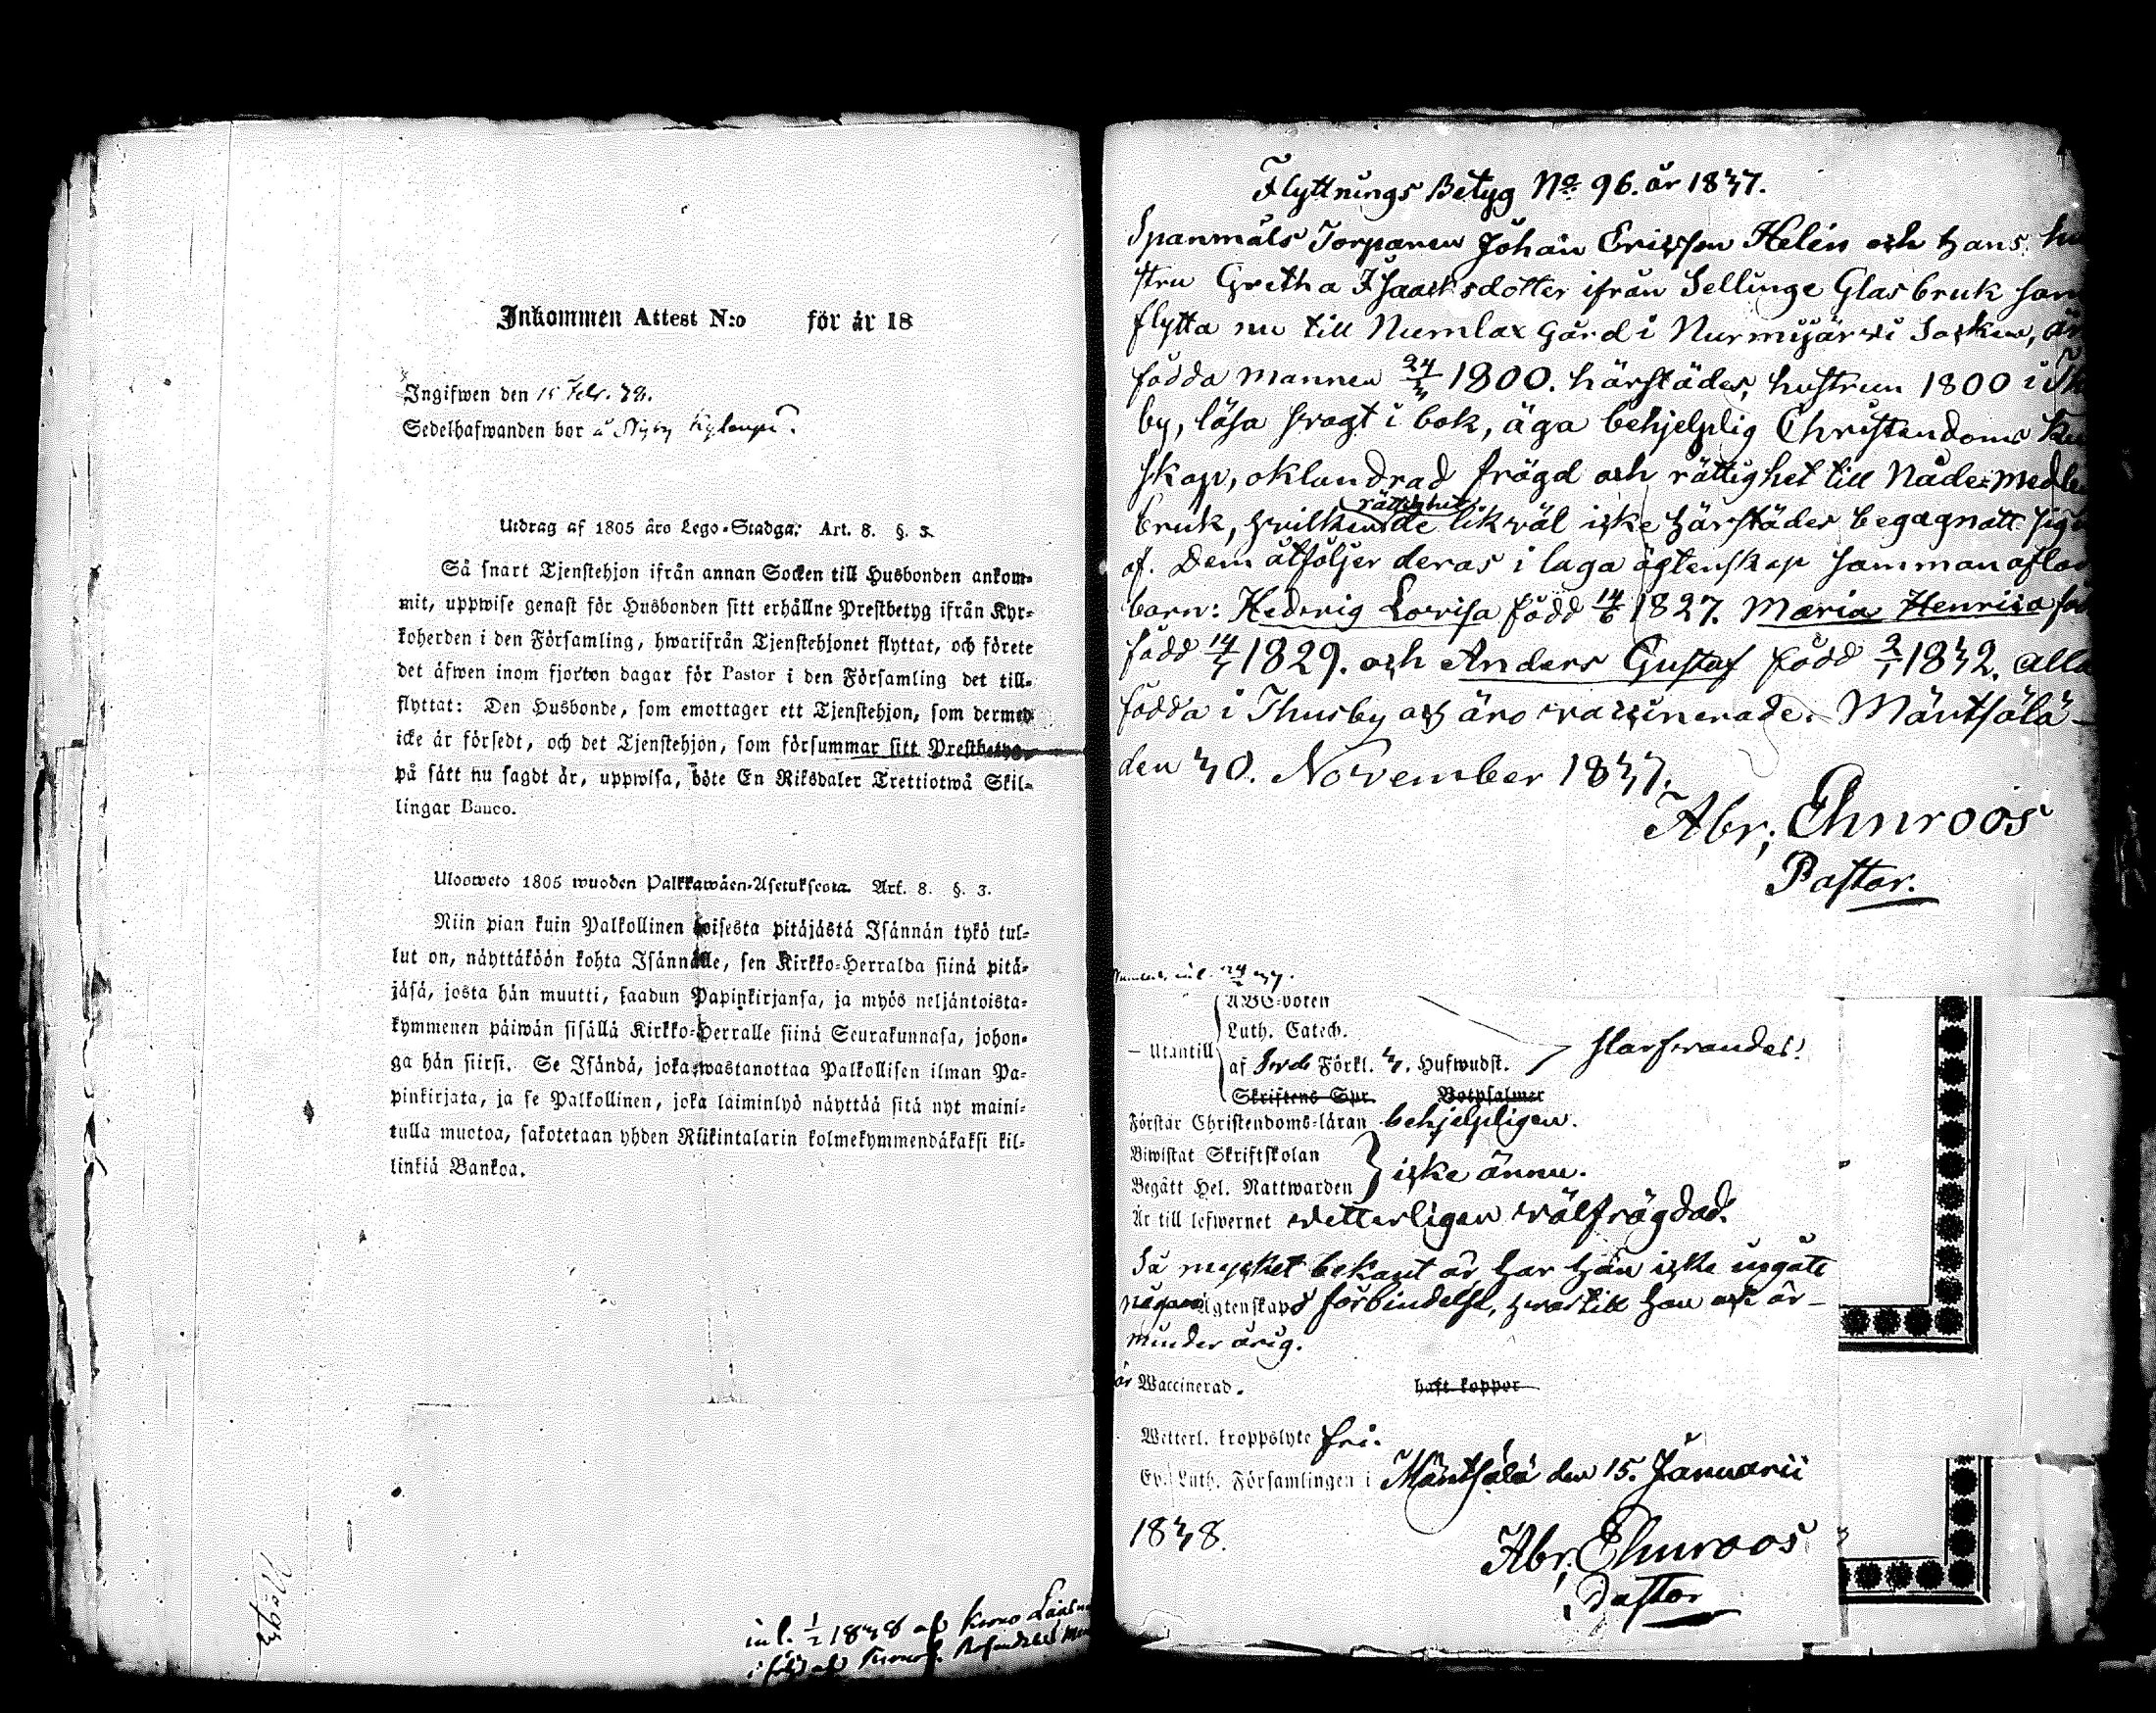 Inkommen Attest N:o för år 18
Ingifwen den 15 Febr. 38.
Sedelhafwanden bor å
Utdrag af 1805 års Lego-Stadga: Art. 8. §. 3.
Så snart Tjenstehjon ifrån annan Socken till Husbonden ankom-
mit, uppwise genast för Husbonden sitt erhållne Prestbetyg ifrån Kyr-
koherden i den Församling, hwarifrån Tjenstehjonet flyttat, och förete
det äfwen inom fjorton dagar för Pastor i den Församling det till-
flyttat: Den Husbonde, som emottager ett Tjenstehjon, som dermed
icke är försedt, och det Tjenstehjon, som försummar sitt Prestbetyg,
på sätt nu sagdt är, uppwisa, böte En Riksdaler Trettiotwå Skil-
lingar Banco.
Ulosweto 1805 wuoden Palkkawäen-Asetuksesta. Art. 8. §. 3.
Niin pian kuin Palkollinen toisesta pitäjästä Isännän tykö tul-
lut on, näyttäköön kohta Isännälle, sen Kirkko-Herralda siinä pitä-
jäsä, josta hän muutti, saadun Papinkirjansa, ja myös neljäntoista-
kymmenen päiwän sisällä Kirkko-Herralle siinä Seurakunnasa, johon-
ga hän siirsi. Se Isändä, joka wastanottaa Palkollisen ilman Pa-
pinkirjata, ja se Palkollinen, joka laiminlyö näyttää sitä nyt maini-
tulla muotoa, sakotetaan yhden Riikintalarin kolmekymmendäkaksi kil-
linkiä Bankoa.
inl. 1/2 1838 af
Flyttnings Betyg No 96. år 1837.
Spanmåls Torparen Johan Ericsson Helén och hans hu
stru Gretha Isaacksdotter ifrån Sellinge Glasbruk som
flytta nu till Numlax Gård i Nurmijärvi Socken, är
födda Mannen 24/3 1800. härstädes, hustrun 1800 i
by, läsa svagt i bok, äga behjelplig Christendoms
skap, oklandrad frägd och rättighet till Nåde-medle
bruk, hvilken rättighet de likväl icke härstädes begagnatt sig
af. Dem åtföljer deras i laga ägtenskap sammanaflad
barn: Hedvig Lovisa född 14/6 1827. Maria Henrica
född 14/3 1829. och Anders Gustaf född 2/1 1832. alla
födda i Thusby och äro vaccinerade. Mäntsälä
den 30. November 1837.
Abr; Ehnroos
Pastor.
ABC-boken
Luth. Catech.
– Utantill
af Förkl. 3. Hufwudst.
Skriftens Spr. Botpsalmer
Förstår Christendoms-läran behjelpligen.
Biwistat Skriftskolan
Begått Hel. Nattwarden } icke ännu.
Är till lefwernet vetterligen välfrägdad.
Så mycket bekant är har han icke ingått
någon Ägtenskaps förbindelse, hvartill han ock är
minder årig.
är Waccinerad. haft koppor
Wetterl. kroppslyte fri.
Ev. Luth. Församlingen i Mäntsälä den 15. Januarii
1838.
Abr; Ehnroos
Pastor